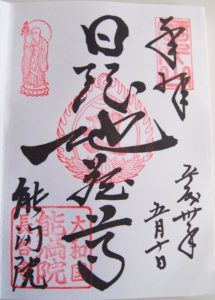 奉拝
平成卅年
五月十日
日限地蔵尊
能満院
大和国
能満院
長谷寺